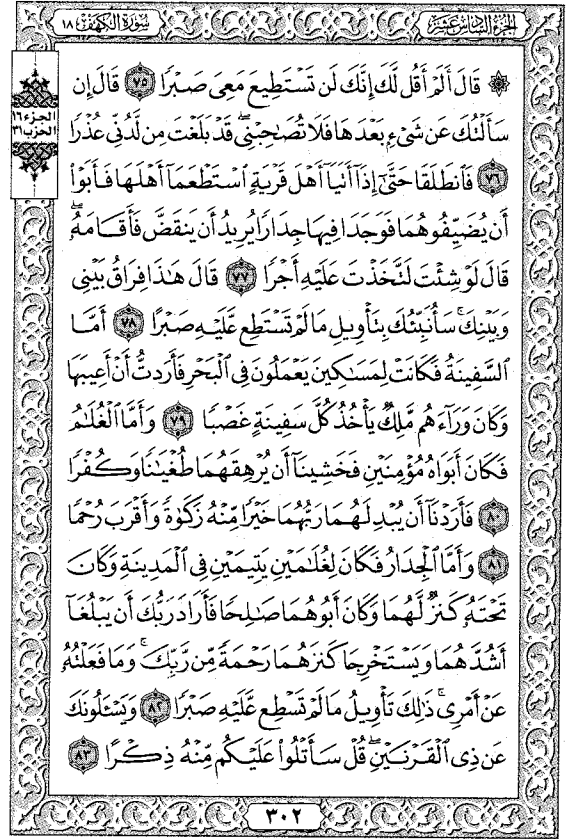 الجزء السادس عشر
سورة الكهف ١٨
الجزء ١٦
الحزب ٣١
۞ قَالَ أَلَمْ أَقُل لَّكَ إِنَّكَ لَن تَسْتَطِيعَ مَعِىَ صَبْرًا ٧٥ قَالَ إِن
سَأَلْتُكَ عَن شَىْءٍۭ بَعْدَهَا فَلَا تُصَـٰحِبْنِى ۖ قَدْ بَلَغْتَ مِن لَّدُنِّى عُذْرًا
٧٦ فَٱنطَلَقَا حَتَّىٰٓ إِذَآ أَتَيَآ أَهْلَ قَرْيَةٍ ٱسْتَطْعَمَآ أَهْلَهَا فَأَبَوْا۟
أَن يُضَيِّفُوهُمَا فَوَجَدَا فِيهَا جِدَارًا يُرِيدُ أَن يَنقَضَّ فَأَقَامَهُۥ ۖ
قَالَ لَوْ شِئْتَ لَتَّخَذْتَ عَلَيْهِ أَجْرًا ٧٧ قَالَ هَـٰذَا فِرَاقُ بَيْنِى
وَبَيْنِكَ ۚ سَأُنَبِّئُكَ بِتَأْوِيلِ مَا لَمْ تَسْتَطِع عَّلَيْهِ صَبْرًا ٧٨ أَمَّا
ٱلسَّفِينَةُ فَكَانَتْ لِمَسَـٰكِينَ يَعْمَلُونَ فِى ٱلْبَحْرِ فَأَرَدتُّ أَنْ أَعِيبَهَا
وَكَانَ وَرَآءَهُم مَّلِكٌ يَأْخُذُ كُلَّ سَفِينَةٍ غَصْبًا ٧٩ وَأَمَّا ٱلْغُلَـٰمُ
فَكَانَ أَبَوَاهُ مُؤْمِنَيْنِ فَخَشِينَآ أَن يُرْهِقَهُمَا طُغْيَـٰنًا وَكُفْرًا
٨٠ فَأَرَدْنَآ أَن يُبْدِلَهُمَا رَبُّهُمَا خَيْرًا مِّنْهُ زَكَوٰةً وَأَقْرَبَ رُحْمًا
٨١ وَأَمَّا ٱلْجِدَارُ فَكَانَ لِغُلَـٰمَيْنِ يَتِيمَيْنِ فِى ٱلْمَدِينَةِ وَكَانَ
تَحْتَهُۥ كَنزٌ لَّهُمَا وَكَانَ أَبُوهُمَا صَـٰلِحًا فَأَرَادَ رَبُّكَ أَن يَبْلُغَآ
أَشُدَّهُمَا وَيَسْتَخْرِجَا كَنزَهُمَا رَحْمَةً مِّن رَّبِّكَ ۚ وَمَا فَعَلْتُهُۥ
عَنْ أَمْرِى ۚ ذَٰلِكَ تَأْوِيلُ مَا لَمْ تَسْطِع عَّلَيْهِ صَبْرًا ٨٢ وَيَسْـَٔلُونَكَ
عَن ذِى ٱلْقَرْنَيْنِ ۖ قُلْ سَأَتْلُوا۟ عَلَيْكُم مِّنْهُ ذِكْرًا ٨٣
٣٠٢